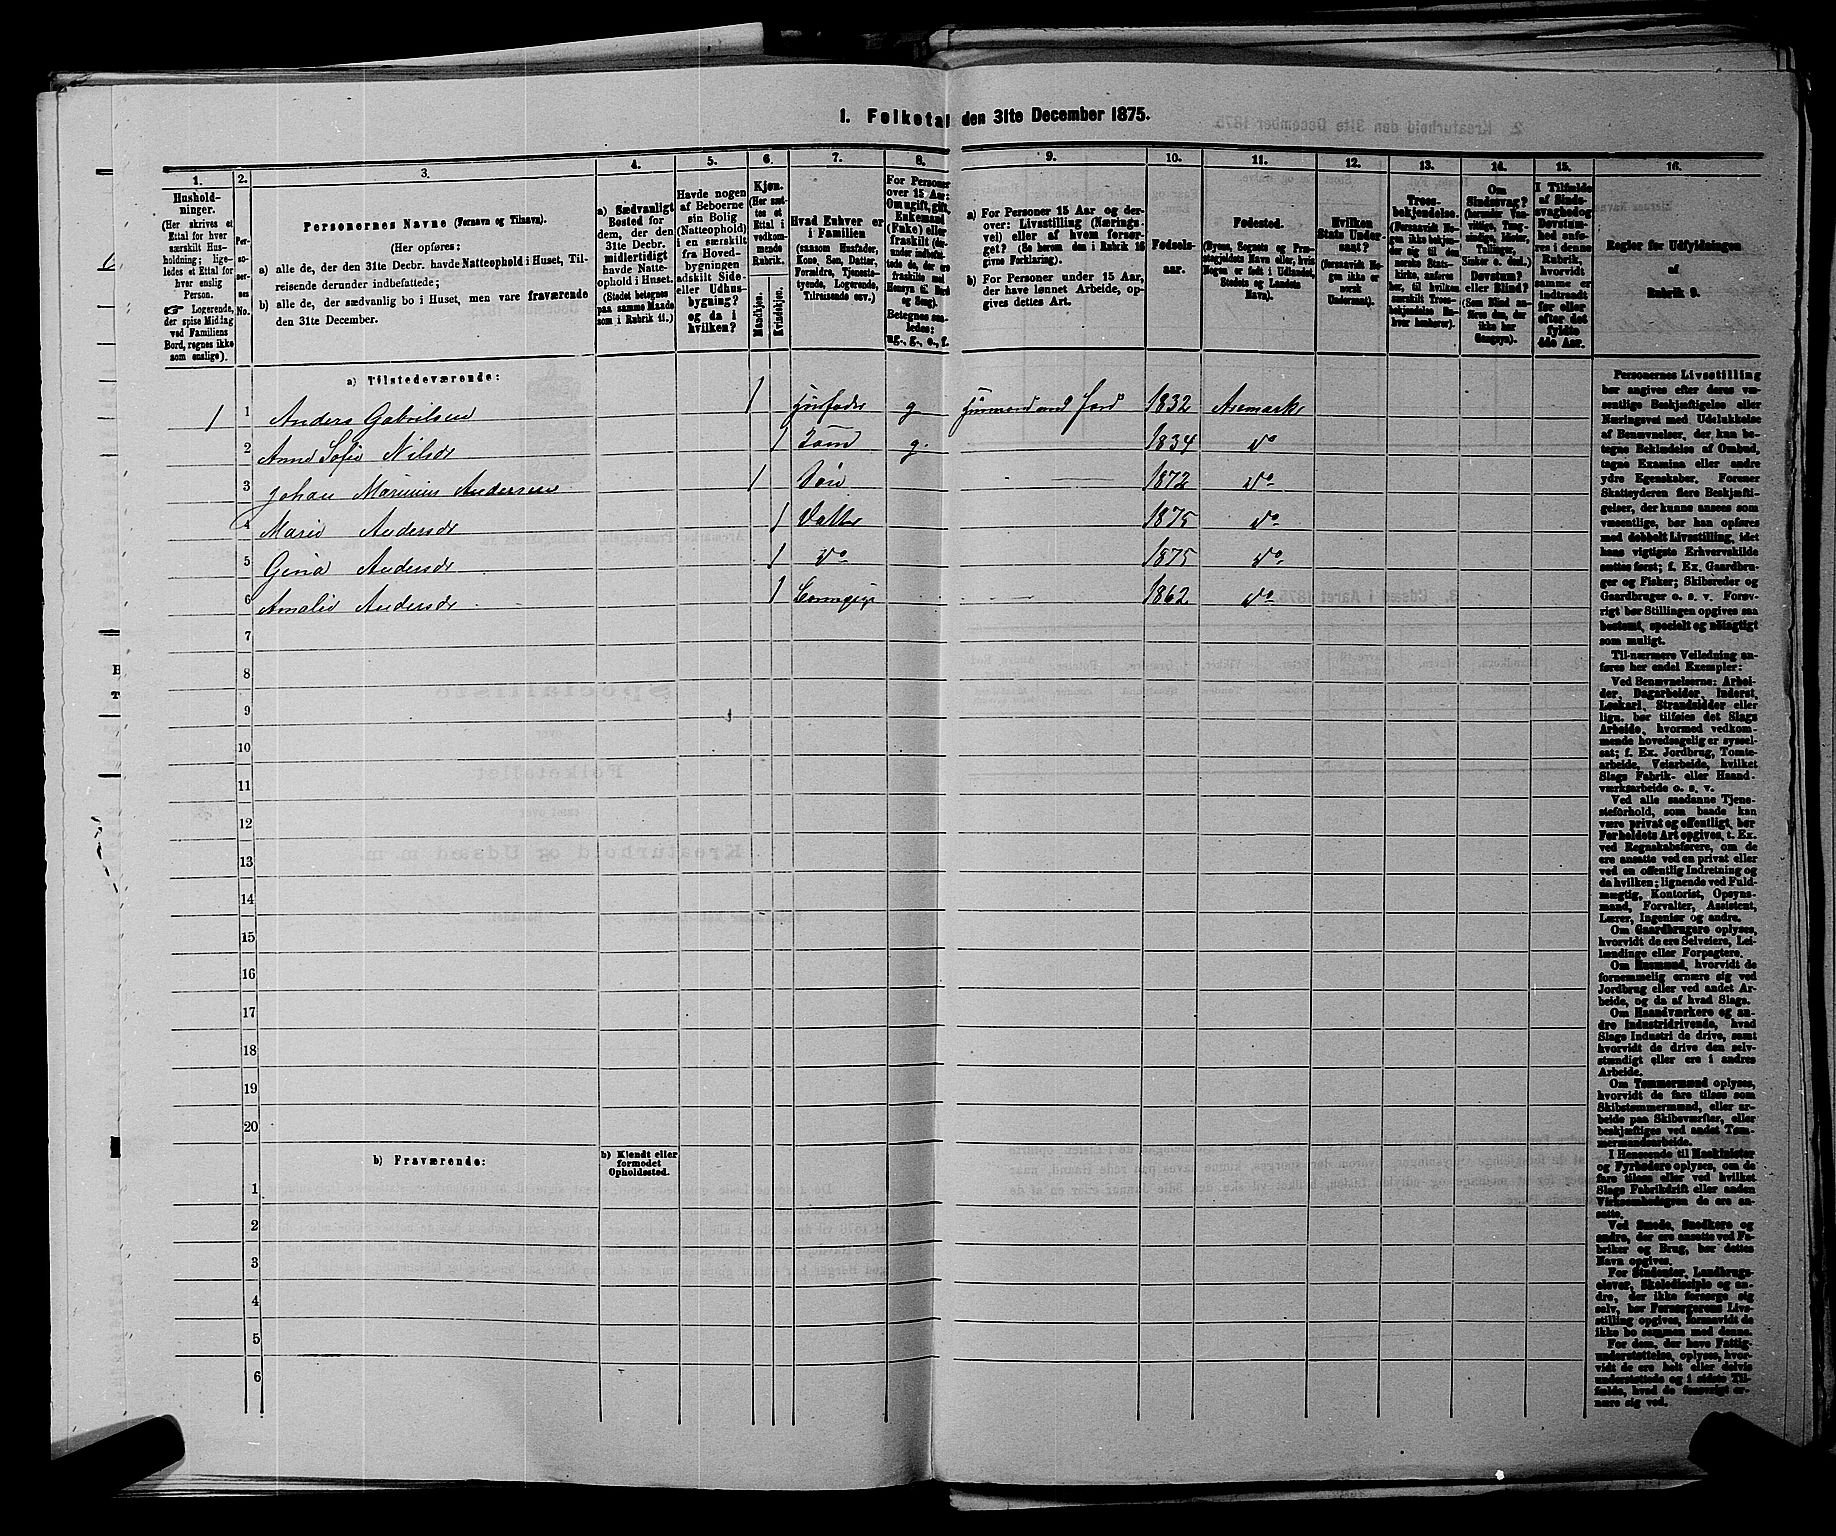 1. Folketal den 31te December 1875.
1.
Hushold-
ninger.
(Her skrives et
Ettal for hver
særskilt Hus-
holdning; lige-
ledes et Ettal for
hver enslig
Person.
☞ Logerende,
der spise Middag
ved Familiens
Bord, regnes ikke
som enslige).
2.
Per-
soner-
nes
No.
3.
Personernes Navne (Fornavn og Tilnavn).
(Her opføres:
a) alle de, der den 31te Decbr. havde Natteophold i Huset, Til-
reisende derunder indbefattede;
b) alle de, der sædvanlig bo i Huset, men vare fraværende
den 31te December.
4.
a) Sædvanligt
Bosted for
dem, der den
31te Decbr.
midlertidigt
havde Natte-
ophold i Huset.
(Stedet betegnes
paa samme Maade
som i Rubrik 11.)
5.
Havde nogen
af Beboerne
sin Bolig
(Natteophold)
i en særskilt
fra Hoved-
bygningen
adskilt Side-
eller Udhus-
bygning?
og da i
hvilken?
6.
Kjøn.
(Her sæt-
tes et
Ettal i
vedkom-
mende
Rubrik.
Mandkjøn.
Kvindekjøn.
7.
Hvad Enhver er
i Familien
(saasom Husfader,
Kone, Søn, Datter,
Forældre, Tjeneste-
tyende, Logerende,
Tilreisende osv.)
8.
For Personer
over 15 Aar:
Om ugift, gift,
Enkemand
(Enke) eller
fraskilt
Betegnes saa-
ledes:
ug., g., e., f.
9.
a) For Personer 15 Aar og der-
over: Livsstilling (Nærings-
vei) eller af hvem forsør-
get? (Se herom den i Rubrik 16
givne Forklaring).
b) For Personer under 15 Aar,
der have lønnet Arbeide, op-
gives dettes Art.
10.
Fødsels-
aar.
11.
Fødested.
(Byens, Sognets og Præ-
stegjeldets Navn eller, hvis
Nogen er født i Udlandet,
Stedets og Landets
Navn).
12.
Hvilken
Stats Under-
saat?
(forsaavidt No-
gen ikke er
norsk
Undersaat).
13.
Troes-
bekjendelse.
(Forsaavidt No-
gen ikke bekjen-
der sig til den
norske Stats-
kirke, anføres
her, til hvilken
særskilt Troes-
bekjendelse En-
hver henhører).
14.
Om
Sindssvag?
Døvstum?
eller Blind?
15.
I Tilfælde
af Sinds-
svaghed og
Døvstum-
hed anfø-
res i denne
Rubrik,
hvorvidt
samme er
indtraadt
før eller
efter det
fyldte
4de Aar.
16.
Regler for Udfyldningen
af
Rubrik 9.
a) Tilstedeværende:
1 1 Anders Gabrielsen 1 Husfader g Husmand med Jord 1832 Aremark
2 Anne Sofie Nilsdr 1 Kone g. 1834 do
3 Johan Marinius Andersen 1 Søn — 1872 do
4 Marie Andersdr 1 Datter 1875 do
5 Gina Andersdr 1 do 1875 do
6 Amalie Andersdr 1 — 1862 do
7
8
9
10
11
12
13
14
15
16
17
18
19
20
b) Fraværende:
b) Kjendt eller
formodet
Opholdssted.
1
2
3
4
5
6
Personernes Livsstilling
bør angives efter deres væ-
sentlige Beskjæftigelse eller
Næringsvei med Udelukkelse
af Benævnelser, der kun be-
tegne Beklædelse af Ombud,
tagne Examina eller andre
ydre Egenskaber. Forener
Skatteyderen flere Beskjæfti-
gelser, der kunne ansees som
væsentlige, bør han opføres
med dobbelt Livsstilling, idet
hans vigtigste Erhvervskilde
sættes først; f. Ex. Gaardbru-
ger og Fisker; Skibsreder og
Gaardbruger o. s. v. Forøv-
rigt bør Stillingen opgives saa
bestemt, specielt og nøiagtigt
som muligt.
Til nærmere Veiledning an-
føres her endel Exempler:
Ved Benævnelserne: Arbei-
der, Dagarbeider, Inderst,
Løskarl, Strandsidder eller
lign. bør tilføies det Slags
Arbeide, hvormed vedkom-
mende hovedsagelig er syssel-
sat; f. Ex. Jordbrug, Tomte-
arbeide, Veiarbeide, hvilket
Slags Fabrik- eller Haand-
værksarbeide o. s. v.
Ved alle saadanne Tjene-
steforhold, som baade kan
være privat og offentligt, bør
Forholdets Art opgives, t. Ex.
ved Regnskabsførere, om de
ere ansatte ved en privat eller
ved en offentlig Indretning og
da hvilken; lignende ved Fuld-
mægtig, Kontorist, Opsyns-
mand, Forvalter, Assistent,
Lærer, Ingeniør og andre.
Om Gaardbrugere oplyses,
hvorvidt de ere Selveiere, Lei-
lændinge eller Forpagtere.
Om Husmænd, hvorvidt de
fornemmelig ernære sig ved
Jordbrug eller ved andet Ar-
beide, og da af hvad Slags.
Om Haandværkere og an-
dre Industridrivende, hvad
Slags Industri de drive, samt
hvorvidt de drive den selv-
stændigt eller ere i andres
Arbeide.
Om Tømmermænd oplyses,
hvorvidt de fare tilsøs som
Skibstømmermænd, eller ar-
beide paa Skibsværfter, eller
beskjæftiges ved andet Tøm-
mermandsarbeide.
I Henseende til Maskinister
og Fyrbødere oplyses, om de
fare tilsøs eller ved hvilket
Slags Fabrikdrift eller anden
Virksomhedsgren de ere an-
satte.
Ved Smede, Snedkere og
andre, der ere ansatte ved Fa-
briker og Brug, bør dettes
Navn opgives.
For Studenter, Landbrugs-
elever, Skoledisciple og an-
dre, der ikke forsørge sig
selv, bør Forsørgerens Livs-
stilling opgives, forsaavidt de
ikke bo sammen med denne.
For dem, der have Fattig-
understøttelse, oplyses, hvor-
vidt de ere helt eller delvis
understøttede og i sidste Til-
fælde, hvad de forøvrigt er-
nære sig ved.